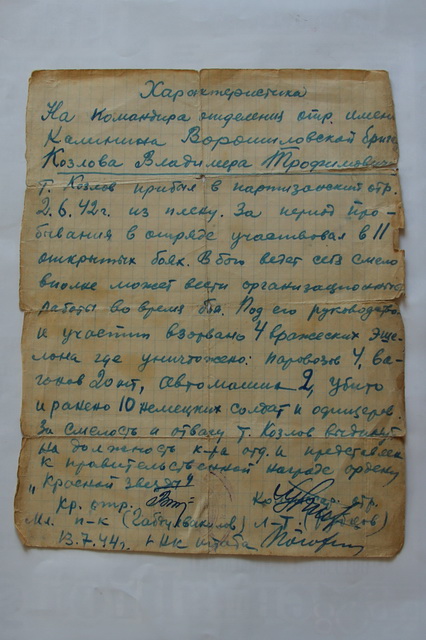 Характеристика
На командира отделения отр. имени
Калинина Ворошиловской бриг.
Козлова Владимера Трофимовича
Т. Козлов прибыл в партизанский отр.
2.6.42г. из плену. За период про-
бывания в отряде участвовал в 11
открытых боях. В бою ведет себя смело
вполне может вести организационную
работы во время боя. Под его руководством
и участии взорвано 4 вражеских эше-
лона где уничтожено: паровозов 4, ва-
гонов 20 шт, автомашин 2, убито
и ранено 10 немецких солдат и офицеров.
За смелость и отвагу т. Козлов выдвинут
на должность к-ра отд. и представлен
к правительственной награде ордену
"Красной звезды"
Кр. отр. отр.
Мл. п-к Л-т.
13.7.44г. НШК штаба